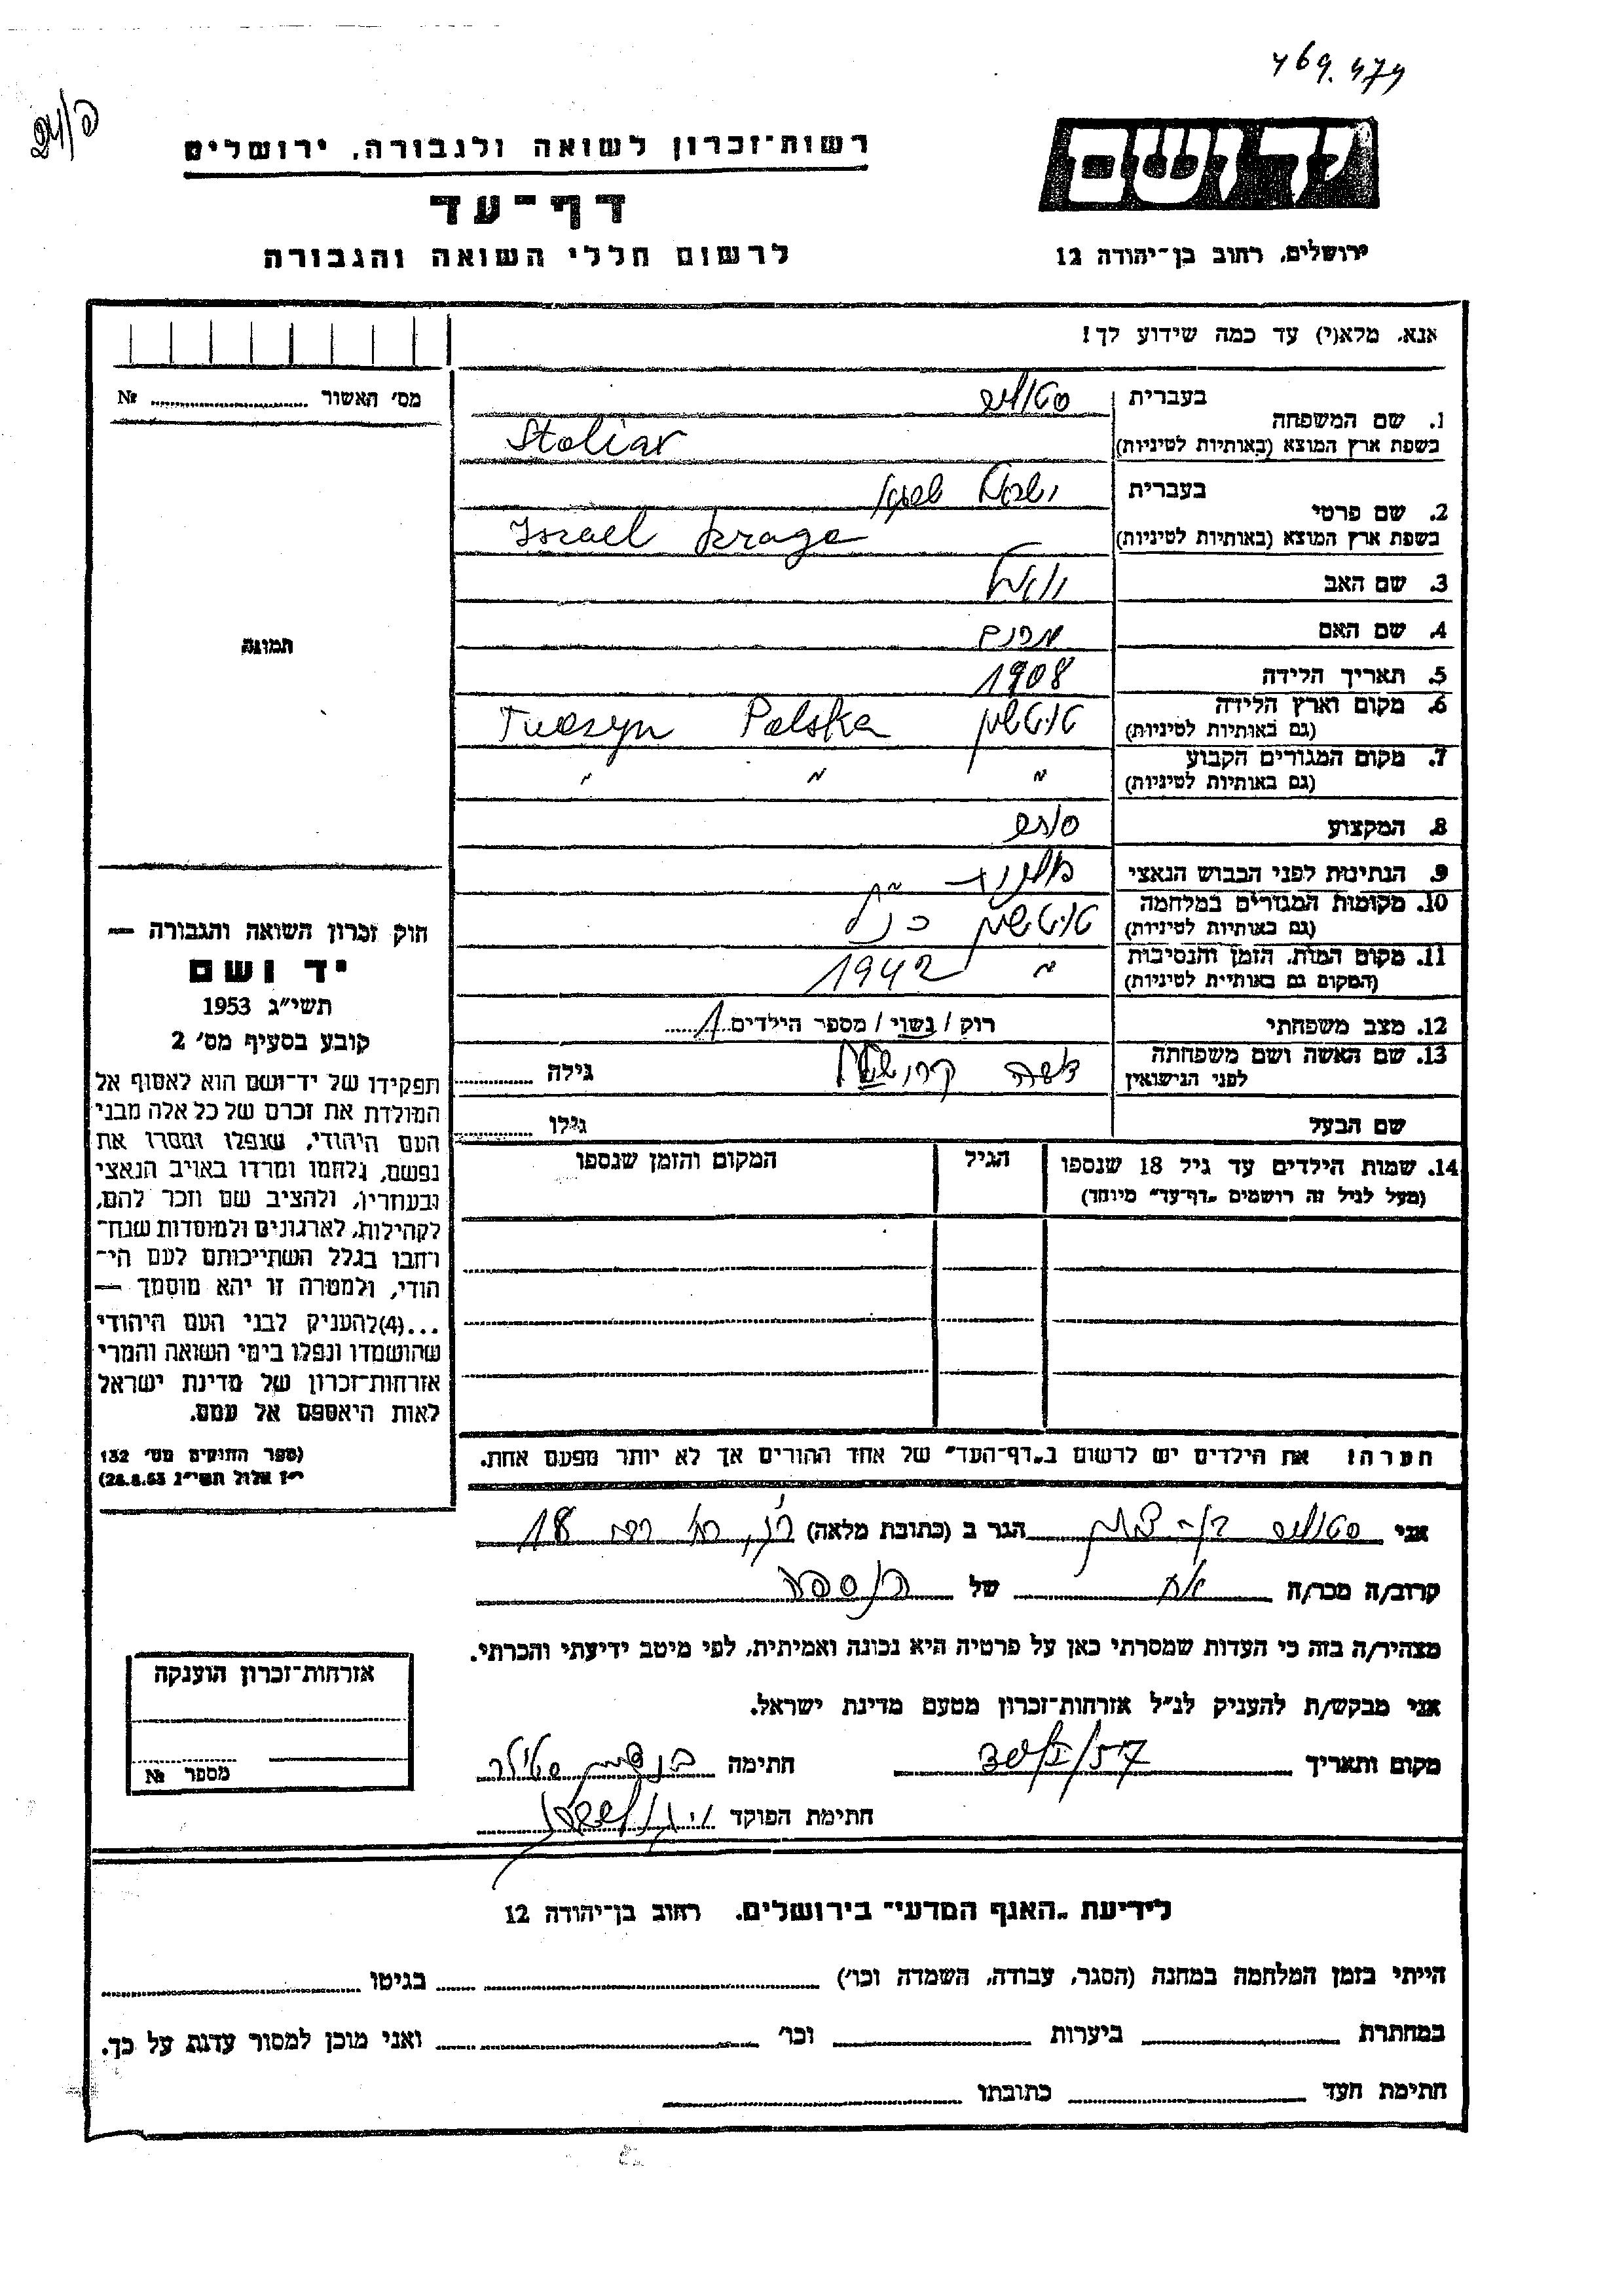 469.474
יד ושם
רשות־זכרון לשואה ולגבורה, ירושלים
דף־עד
לרשום חללי השואה והגבורה
ירושלים, רחוב בן־יהודה 12
אנא, מלא(י) עד כמה שידוע לך!
מס׳ האשור № 
1. שם המשפחה בעברית סטוליר
בשפת ארץ המוצא (באותיות לטיניות) Stoliar
2. שם פרטי בעברית ישראל
בשפת ארץ המוצא (באותיות לטיניות) Israel Srage
3. שם האב
4. שם האם מרים
5. תאריך הלידה 1908
6. מקום וארץ הלידה (גם באותיות לטיניות) טוטשין Polska Tuczyn
7. מקום המגורים הקבוע (גם באותיות לטיניות) ״ ״ ״
8. המקצוע סוחר
9. הנתינות לפני הכבוש הנאצי
10. מקומות המגורים במלחמה (גם באותיות לטיניות) טוטשין כנ״ל
11. מקום המות, הזמן והנסיבות (המקום גם באותיות לטיניות) ״ 1942
12. מצב משפחתי רוק / נשוי / מספר הילדים 1
13. שם האשה ושם משפחתה לפני הנישואין גילה
שם הבעל גילו
14. שמות הילדים עד גיל 18 שנספו הגיל המקום והזמן שנספו
(מעל לגיל זה רושמים „דף־עד״ מיוחד)
הערה: את הילדים יש לרשום ב„דף־העד״ של אחד ההורים אך לא יותר מפעם אחת.
תמונה
חוק זכרון השואה והגבורה —
יד ושם
תשי״ג 1953
קובע בסעיף מס׳ 2
תפקידו של יד־ושם הוא לאסוף אל
המולדת את זכרם של כל אלה מבני
העם היהודי, שנפלו ומסרו את
נפשם, נלחמו ומרדו באויב הנאצי
ובעוזריו, ולהציב שם וזכר להם,
לקהילות, לארגונים ולמוסדות שנח־
רבו בגלל השתייכותם לעם הי־
הודי, ולמטרה זו יהא מוסמך —
...(4)להעניק לבני העם היהודי
שהושמדו ונפלו בימי השואה והמרי
אזרחות־זכרון של מדינת ישראל
לאות היאספם אל עמם.
(ספר החוקים מס׳ 132
י״ז אלול תשי״ג 28.8.53)
אני סטוליר בן־ציון הגר ב (כתובת מלאה) 18
קרוב/ה מכר/ה אח של הנספה
מצהיר/ה בזה כי העדות שמסרתי כאן על פרטיה היא נכונה ואמיתית, לפי מיטב ידיעתי והכרתי.
אני מבקש/ת להעניק לנ״ל אזרחות־זכרון מטעם מדינת ישראל.
מקום ותאריך חתימה בן ציון סטולר
חתימת הפוקד
אזרחות־זכרון הוענקה
מספר №
לידיעת „האגף המדעי״ בירושלים, רחוב בן־יהודה 12
הייתי בזמן המלחמה במחנה (הסגר, עבודה, השמדה וכו׳) בגיטו
במחתרת ביערות וכו׳ ואני מוכן למסור עדות על כך.
חתימת העד כתובתו